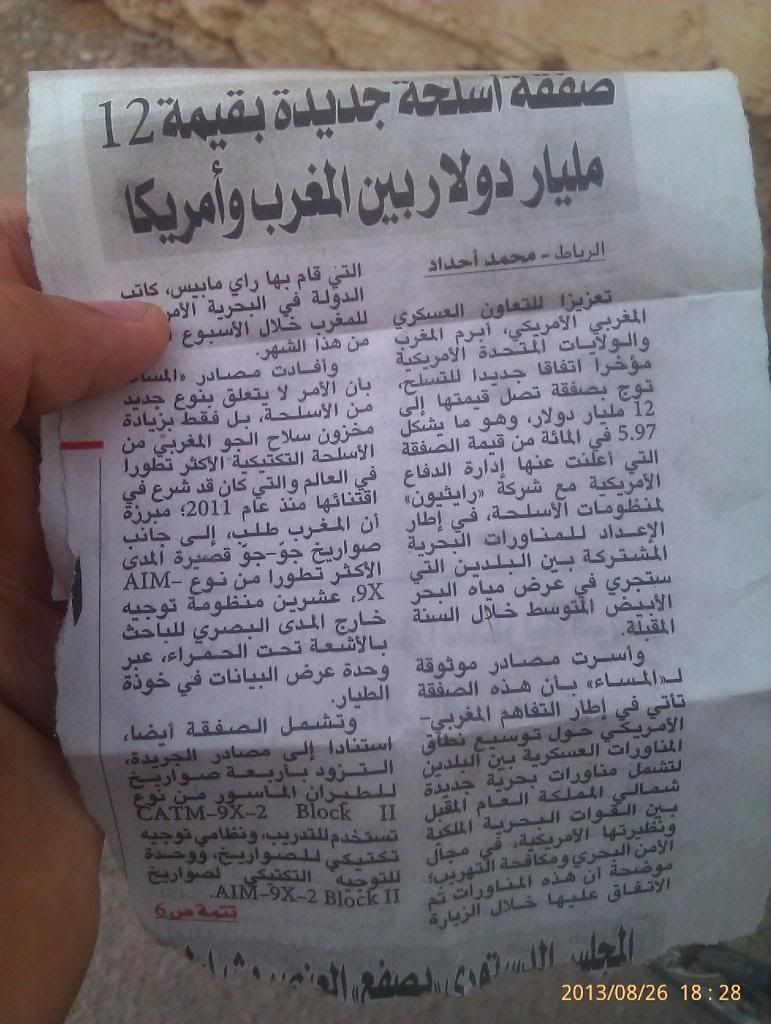 صفقة أسلحة جديدة بقيمة 12
مليار دولار بين المغرب وأمريكا
الرباط - محمد أحداد
تعزيزا للتعاون العسكري
المغربي الأمريكي، أبرم المغرب
والولايات المتحدة الأمريكية
مؤخرا اتفاقا جديدا للتسلح،
توج بصفقة تصل قيمتها إلى
12 مليار دولار، وهو ما يشكل
5.97 في المائة من قيمة الصفقة
التي أعلنت عنها إدارة الدفاع
الأمريكية مع شركة «رايثيون»
لمنظومات الأسلحة، في إطار
الإعداد للمناورات البحرية
المشتركة بين البلدين التي
ستجري في عرض مياه البحر
الأبيض المتوسط خلال السنة
المقبلة.
وأسرت مصادر موثوقة
لـ«المساء» بأن هذه الصفقة
تأتي في إطار التفاهم المغربي-
الأمريكي حول توسيع نطاق
المناورات العسكرية بين البلدين
لتشمل مناورات بحرية جديدة
شمالي المملكة العام المقبل
بين القوات البحرية الملكية
ونظيرتها الأمريكية، في مجال
الأمن البحري ومكافحة التهريب؛
موضحة أن هذه المناورات تم
الاتفاق عليها خلال الزيارة
التي قام بها راي مابيس، كاتب
الدولة في البحرية
للمغرب خلال الأسبوع
من هذا الشهر.
وأفادت مصادر «المساء»
بأن الأمر لا يتعلق بنوع جديد
من الأسلحة، بل فقط بزيادة
مخزون سلاح الجو المغربي من
الأسلحة التكتيكية الأكثر تطورا
في العالم والتي كان قد شرع في
اقتنائها منذ عام 2011؛ مبرزة
أن المغرب طلب، إلى جانب
صواريخ جوّ-جوّ قصيرة المدى
الأكثر تطورا من نوع AIM-
9X، عشرين منظومة توجيه
خارج المدى البصري للباحث
بالأشعة تحت الحمراء، عبر
وحدة عرض البيانات في خوذة
الطيار.
وتشمل الصفقة أيضا،
استنادا إلى مصادر الجريدة،
التزود بأربعة صواريخ
للطيران المأسور من نوع
CATM-9X-2 Block II
تستخدم للتدريب، ونظامي توجيه
تكتيكي للصواريخ، ووحدة
للتوجيه التكتيكي لصواريخ
AIM-9X-2 Block II.
تتمة ص 6
المجلس الدستوري
2013/08/26 18:28